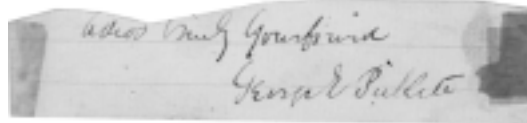 adios truly Your friend
George E Pickett